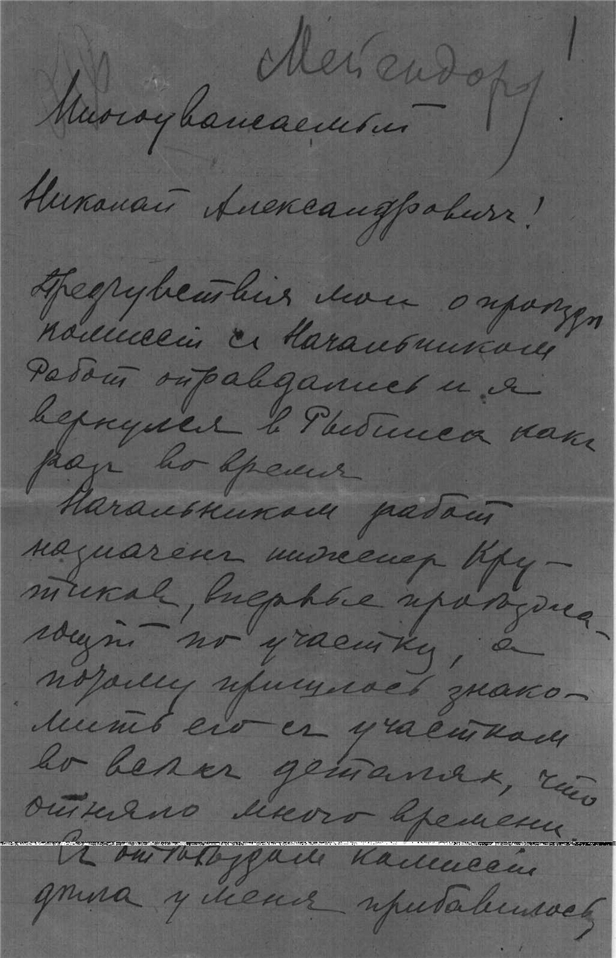 1
Мейендорф
Многоуважаемый
Николай Александрович!
Предчувствiя мои о проѣздѣ
комиссiи съ Начальником
Работ оправдались и я
вернулся в Рыбинск какъ
разъ во время
Начальником работ
назначенъ инженер Кру-
тиков, впервые проѣзжа-
ющiй по участку, а
потому пришлось знако-
мить его съ участком
во всѣхъ деталях, что
отняло много времени.
Съ отъѣздом комиссiи
дѣла у меня прибавилось,